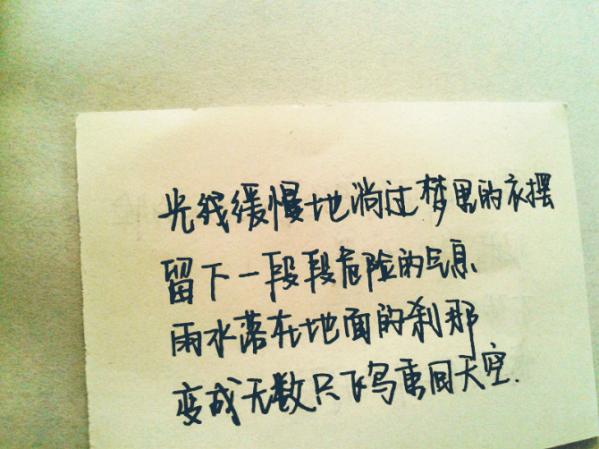 光线缓慢地淌过梦里的衣摆
留下一段段危险的气息
雨水落在地面的刹那
变成无数只飞鸟重回天空.